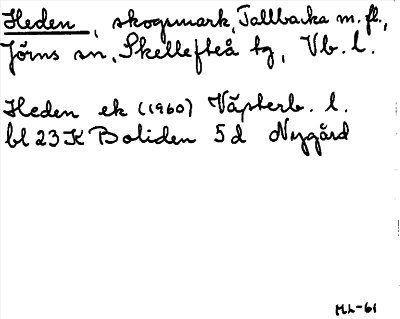 Heden, skogsmark, Tallbacka m. fl.,
Jörns sn, Skellefteå tg, Vb. l.
Heden ek (1960) Västerb. l.
bl 23 K Boliden 5 d Nygård
ML-61